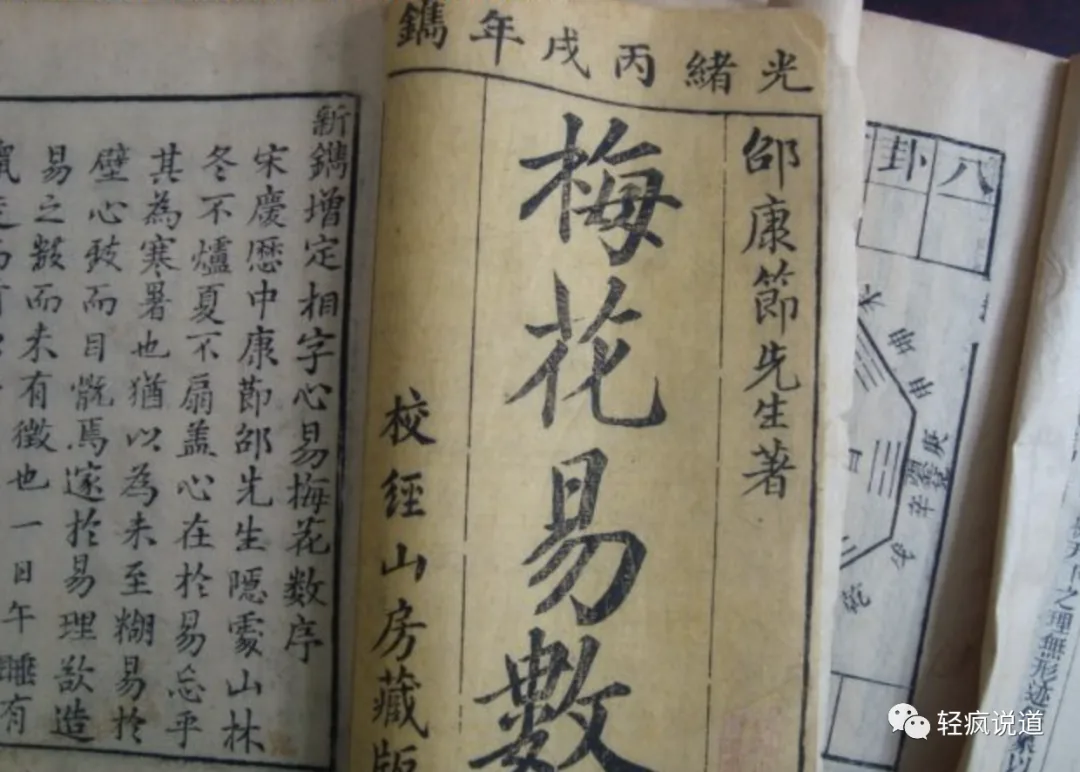 光緒丙戌年鐫
邵康節先生著
梅花易數
校經山房藏版
新鐫增定相字心易梅花数序
宋慶歷中康節邵先生隱處山林
冬不爐夏不扇盖心在於易忘乎
其為寒暑也猶以為未至糊易於
壁心致而目翫焉邃於易理欲造
易之數而未有徵也一日午睡有
鼠走而前
八卦
之理無形迹
轻疯说道